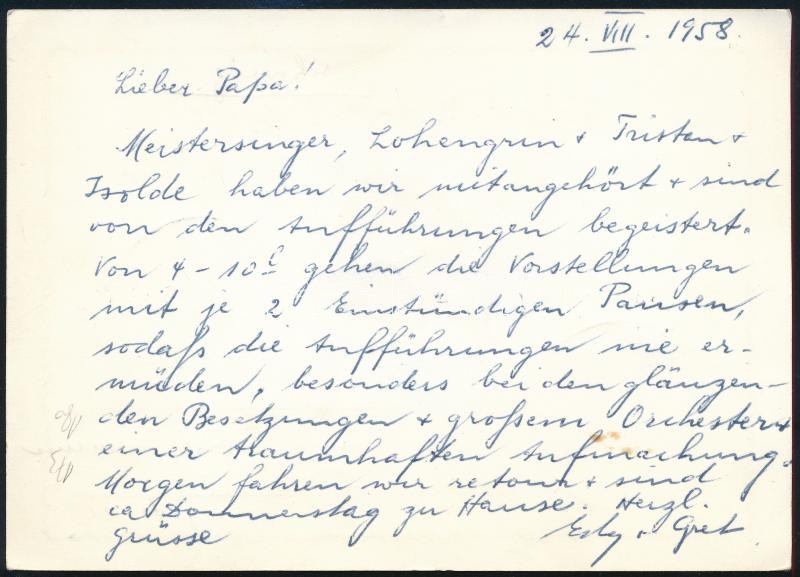 24. VIII. 1958.
Lieber Papa!
Meistersinger, Lohengrin + Tristan +
Isolde haben wir mitangehört + sind
von den Aufführungen begeistert.
Von 4 - 10 h gehen die Vorstellungen
mit je 2 Einstündigen Pausen,
sodaß die Aufführungen nie er-
müden, besonders bei den glänzen-
den Besetzungen + großem Orchester +
einer traumhaften Aufmachung.
Morgen fahren wir retour + sind
ca Donnerstag zu Hause. Herzl.
Grüsse Edy + Gret.